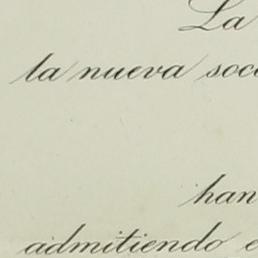 La
la nueva soc
han
admitiendo e